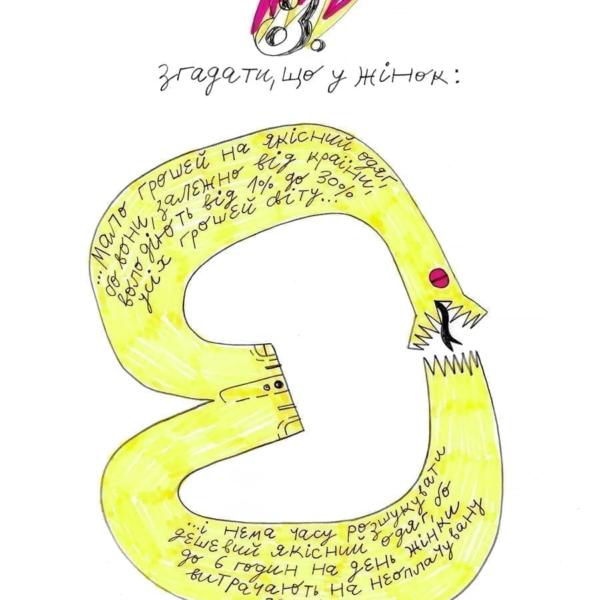 8.
згадати, що у жінок:
...Мало грошей на якісний одяг,
бо вони, залежно від країни,
володіють від 1% до 30%
усіх грошей світу...
...і нема часу розшукувати
дешевий якісний одяг, бо
до 6 годин на день жінки
витрачають на неоплачувану